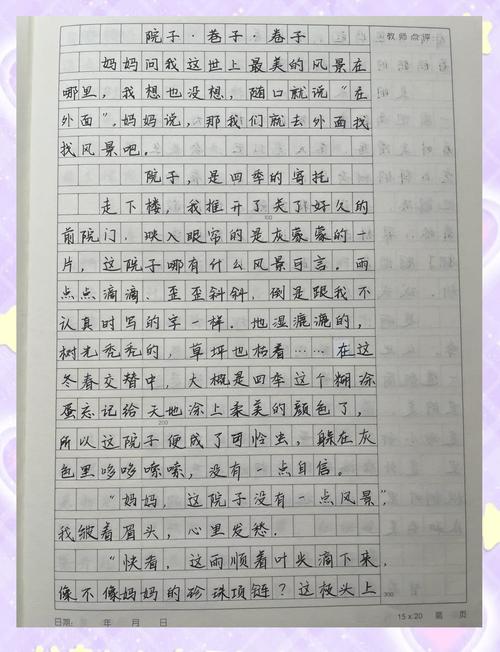 院子·巷子·卷子
教师点评
妈妈问我这世上最美的风景在
哪里，我想也没想，随口就说“在
外面”。妈妈说，那我们就去外面找
找风景吧。
院子，是四季的寄托
走下楼，我推开了关了好久的
100
前院门。映入眼帘的是灰蒙蒙的一
片，这院子哪有什么风景可言。雨
点点滴滴、歪歪斜斜，倒是跟我不
认真时写的字一样。地湿漉漉的，
树光秃秃的，草坪也枯着……在这
冬春交替中，大概是四季这个糊涂
蛋忘记给天地涂上柔美的颜色了，
200
所以这院子便成了可怜虫，躲在灰
色里哆哆嗦嗦，没有一点自信。
“妈妈，这院子没有一点风景”，
我皱着眉头，心里发愁。
“快看，这雨顺着叶尖滴下来，
像不像妈妈的珍珠项链？这枝头上
300
日期： 年 月 日
15×20 第 页